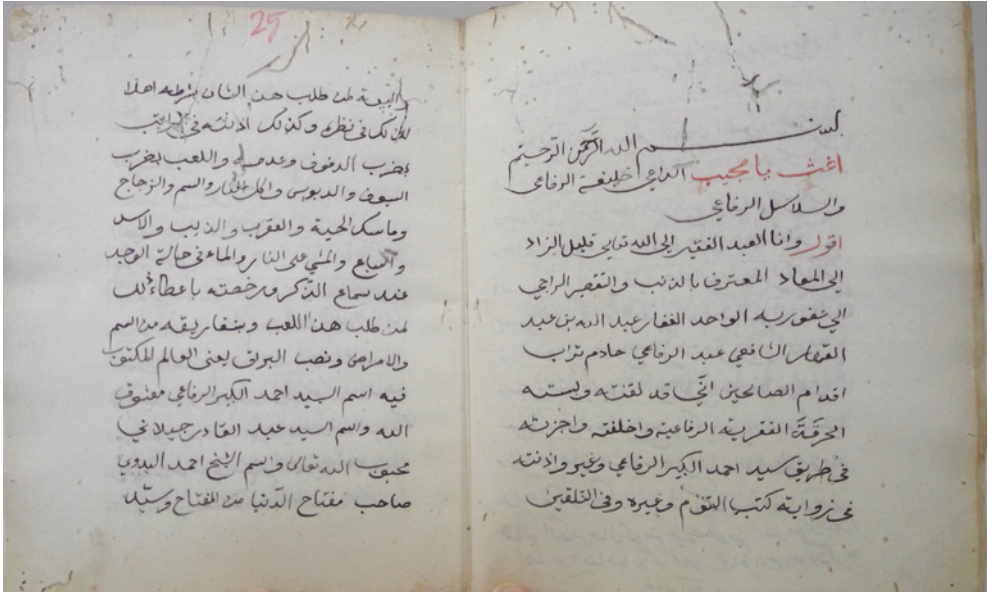 بسم الله الرحمن الرحيم
اغث يا مجيب الداعي خليفة الرفاعي
والسلاسل الرفاعي
اقول وانا العبد الفقير الى الله تعالى قليل الزاد
الي المعاد المعترف بالذنب والتقصير الراجي
الي عفو ربه الواحد الغفار عبد الله بن عبد
القهار الشافعي عبد الرفاعي خادم تراب
اقدام الصالحين انّي قد لقنته ولبسته
الخرقة الفقرية الرفاعية واخلفته واجزته
في طريق سيد احمد الكبير الرفاعي وغيره واذنته
في رواية كتب القوم وغيره وفي التلقين
25
والبيعة لمن طلب هذ الشان بشرطه اهلا
لذلك في نظره وكذلك اذنته في الراتب
بضرب الدفوف وعدمه واللعب بضرب
السيوف والدبوس واكل النار والسم والزجاج
وماسك الحية والعقرب والذيب والاسد
والسباع والمشي على النار والماء في حالة الوجد
عند سماع الذكر ورخصته باعطاء ذلك
لمن طلب هذ اللعب وبتفاريقه من السم
والامراض ونصب البراق يعنى العالم المكتوب
فيه اسم السيد احمد الكبير الرفاعي معشوق
الله واسم السيد عبد القادر جيلاني
محبوب الله تعالى واسم الشيخ احمد البدوي
صاحب مفتاح الدّنيا من المفتاح وسيّد